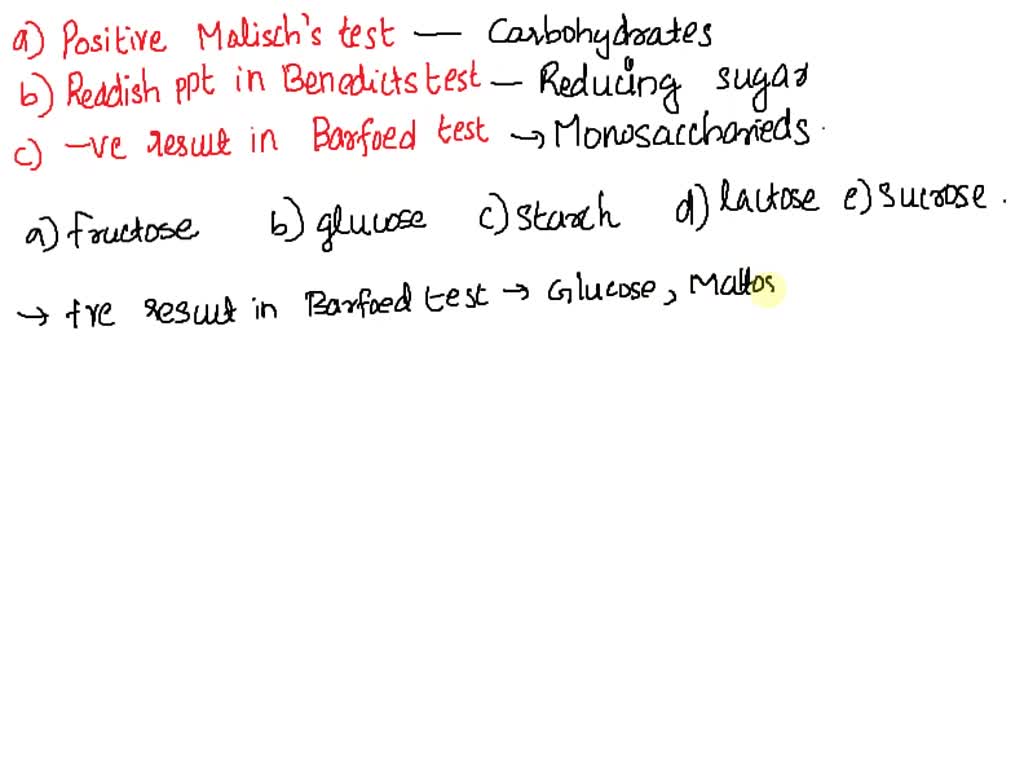 a) Positive Malisch's test — Carbohydrates
b) Reddish ppt in Benedicts test — Reducing sugar
c) -ve result in Barfoed test → Monosaccharieds.
a) fructose b) glucose c) starch d) lactose e) sucrose.
→ +ve result in Barfoed test → Glucose, Maltos